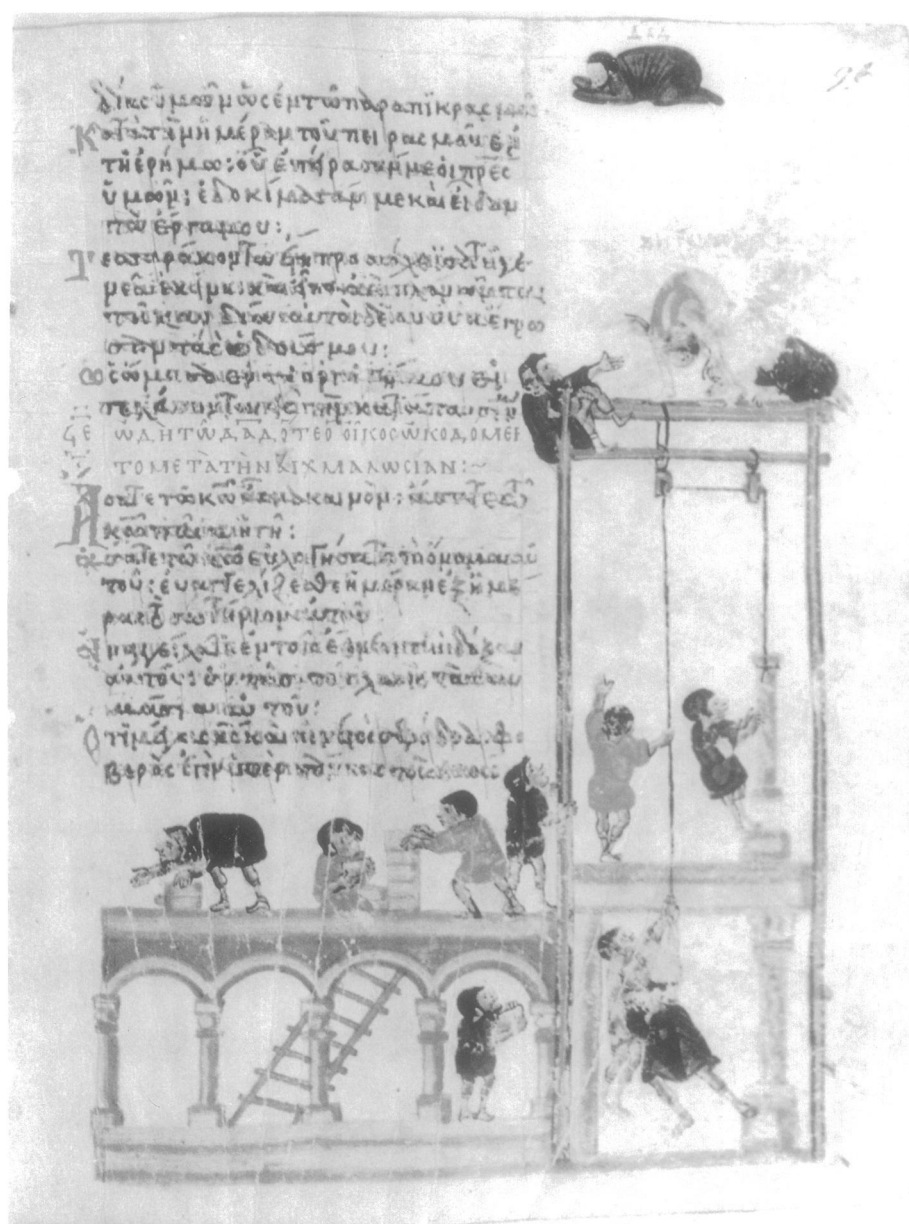 δίας ὑμῶν ὡς ἐν τῶ παραπικρασμῶ
Κατὰ τὴν ἡμέραν τοῦ πειρασμοῦ ἐν
τῆ ἐρήμω: οὗ ἐπείρασάν με οἱ πρες
ὑμῶν: ἐδοκίμασάν με καὶ εἶδον
τὰ ἔργα μου:
Τεσσαράκοντα ἔτη προσώχθισα τῆ γε
νεᾶ ἐκείνη: καὶ εἶπον ἀεὶ πλανῶνται
τῆ καρδία αὐτοὶ δὲ οὐκ ἔγνω
σαν τὰς ὁδούς μου:
ὡς ὤμοσα ἐν τῆ ὀργῆ μου εἰ
κατάπαυσίν
ΩΔΗ ΤΩ ΔΑΔ ΟΤΕ Ο ΟΙΚΟΣ ΩΚΟΔΟΜΕΙ
ΤΟ ΜΕΤΑ ΤΗΝ ΑΙΧΜΑΛΩΣΙΑΝ:
Ἄσατε τῶ κω ἆσμα καινόν: ἄσατε τῶ
κω πᾶσα ἡ γῆ:
ἄσατε τῶ κω εὐλογήσατε τὸ ὄνομα αὐ
τοῦ: εὐαγγελίζεσθε ἡμέραν ἐξ ἡμέ
ρας τὸ σωτήριον αὐτοῦ
ἀναγγείλατε ἐν τοῖς ἔθνεσιν τὴν δόξαν
αὐτοῦ: ἐν πᾶσι τοῖς λαοῖς τὰ θαυ
μάσια αὐτοῦ:
Ὅτι μέγας κς καὶ αἰνετὸς σφόδρα φο
βερός ἐστιν
ΔΑΔ